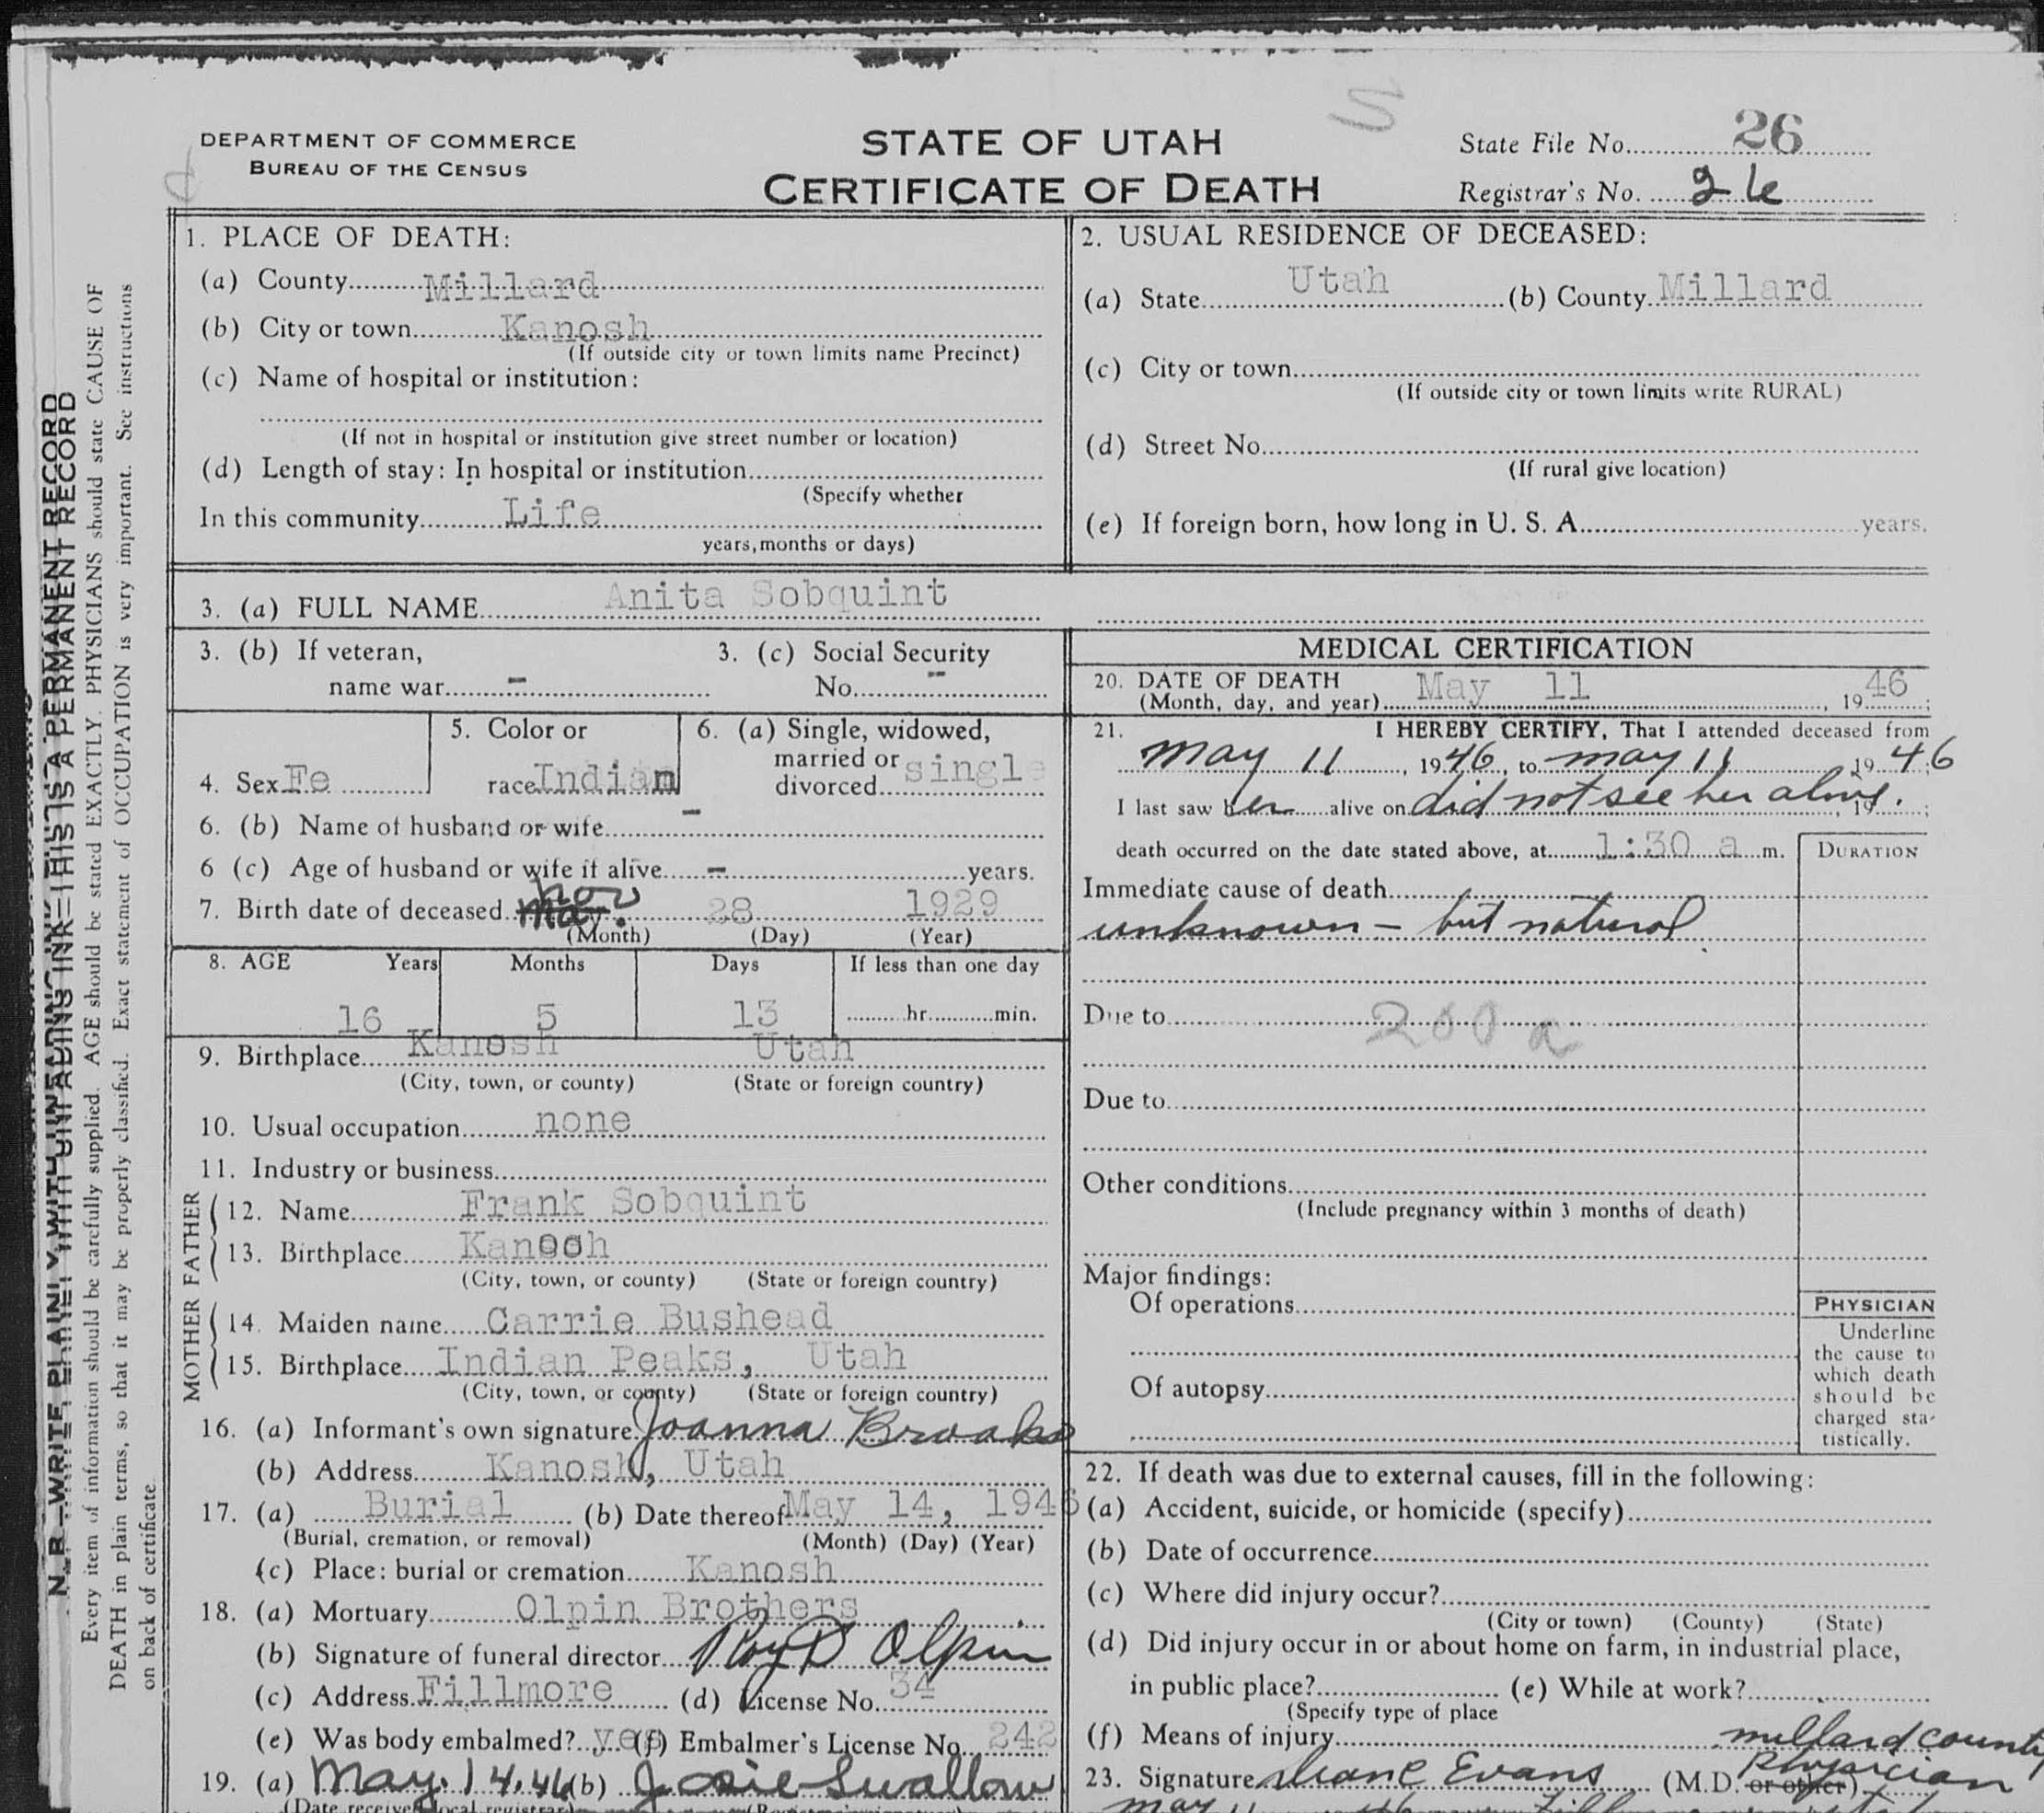 DEPARTMENT OF COMMERCE
BUREAU OF THE CENSUS
STATE OF UTAH
CERTIFICATE OF DEATH
State File No. 26
Registrar's No. 26
N. B.—WRITE PLAINLY WITH UNFADING INK—THIS IS A PERMANENT RECORD
Every item of information should be carefully supplied. AGE should be stated EXACTLY. PHYSICIANS should state CAUSE OF
DEATH in plain terms, so that it may be properly classified. Exact statement of OCCUPATION is very important. See instructions
on back of certificate.
1. PLACE OF DEATH:
(a) County Millard
(b) City or town Kanosh
(If outside city or town limits name Precinct)
(c) Name of hospital or institution:
(If not in hospital or institution give street number or location)
(d) Length of stay: In hospital or institution
(Specify whether
In this community Life
years, months or days)
2. USUAL RESIDENCE OF DECEASED:
(a) State Utah (b) County Millard
(c) City or town
(If outside city or town limits write RURAL)
(d) Street No.
(If rural give location)
(e) If foreign born, how long in U. S. A. years.
3. (a) FULL NAME Anita Sobquint
3. (b) If veteran,
name war -
3. (c) Social Security
No. -
4. Sex Fe
5. Color or
race Indian
6. (a) Single, widowed,
married or
divorced single
6. (b) Name of husband or wife -
6 (c) Age of husband or wife if alive - years.
7. Birth date of deceased May. Nov 28 1929
(Month) (Day) (Year)
8. AGE Years Months Days If less than one day
16 5 13 hr. min.
9. Birthplace Kanosh Utah
(City, town, or county) (State or foreign country)
10. Usual occupation none
11. Industry or business
FATHER
12. Name Frank Sobquint
13. Birthplace Kanosh
(City, town, or county) (State or foreign country)
MOTHER
14. Maiden name Carrie Bushead
15. Birthplace Indian Peaks, Utah
(City, town, or county) (State or foreign country)
16. (a) Informant's own signature Joanna Brooks
(b) Address Kanosh, Utah
17. (a) Burial (b) Date thereof May 14, 1946
(Burial, cremation, or removal) (Month) (Day) (Year)
(c) Place: burial or cremation Kanosh
18. (a) Mortuary Olpin Brothers
(b) Signature of funeral director Roy D Olpin
(c) Address Fillmore (d) License No. 34
(e) Was body embalmed? yes (f) Embalmer's License No. 242
19. (a) May. 14. 46 (b) Josie Swallow
MEDICAL CERTIFICATION
20. DATE OF DEATH
(Month, day, and year) May 11, 1946;
21. I HEREBY CERTIFY, That I attended deceased from
May 11, 1946, to May 11, 1946
I last saw her alive on did not see her alive., 19 ;
death occurred on the date stated above, at 1:30 a m.
DURATION
Immediate cause of death
unknown - but natural
Due to 200 a
Due to
Other conditions
(Include pregnancy within 3 months of death)
Major findings:
Of operations
Of autopsy
PHYSICIAN
Underline
the cause to
which death
should be
charged sta-
tistically.
22. If death was due to external causes, fill in the following:
(a) Accident, suicide, or homicide (specify)
(b) Date of occurrence
(c) Where did injury occur?
(City or town) (County) (State)
(d) Did injury occur in or about home on farm, in industrial place,
in public place? (e) While at work?
(Specify type of place
(f) Means of injury
Millard County
Physician
23. Signature Evans (M.D. or other)